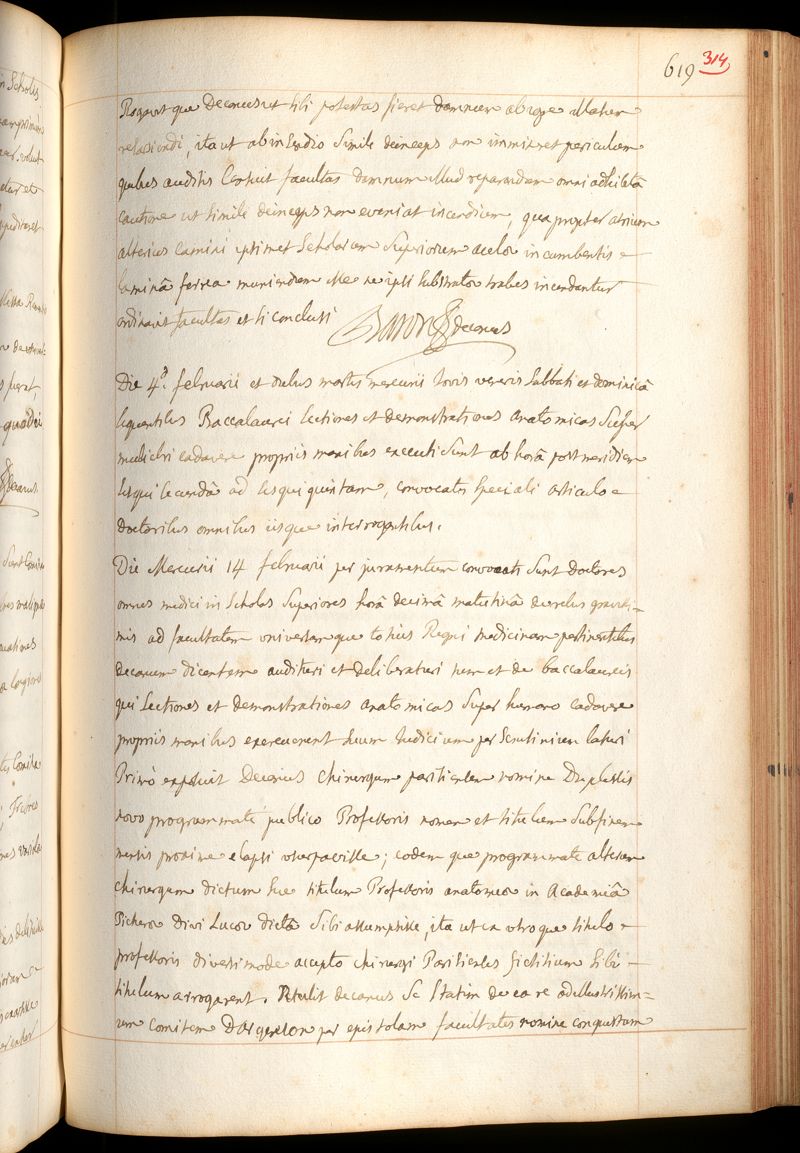 619 314
Rogavitque Decanus ut sibi potestas fieret damnum absque
, ita ut ab incendio simili deinceps non immineret periculum
quibus auditis Censuit facultas damnum illud reparandum omni adhibitâ
cautione ut simile deinceps non eveniat incendium, quapropter atrium
alterius camini ipsimet Scholarum Superiorum incumbentis
laminâ ferreâ muniendum ne ipsi substratos trabes incendantur
ordinavit facultas et sic conclusi Baron decanus
Die 4.ª februarii et diebus martis mercurii Jovis veneris Sabbati et dominicâ
sequentibus Baccalaurei lectiones et demonstrationes anatomicas Super
muliebri cadavere propriis manibus executi Sunt ab horâ post meridiem
sesqui secundâ ad sesqui quintam, convocatis speciali articulo
doctoribus omnibus iisque interrogantibus.
Die Mercurii 14 februarii per juramentum convocati Sunt Doctores
omnes medici in Scholas Superiores horâ decimâ matutinâ de rebus gravissi-
mis ad facultatem universamque totius Regni medicinam pertinentibus
decanum dicentem audituri et deliberaturi num et de baccalaureis
qui Lectiones et demonstrationes anatomicas Super humano cadavere
propriis manibus exercuerunt suum Judicium per Scrutinium laturi
Primò exposuit Decanus chirurgum parisiensem nomine Duplessis
novo programmate publico Professoris nomen et titulum Sub finem
mensis proxime elapsi usurpavisse; eodemque programmate alterum
chirurgum dictum Sue titulum Professoris anatomes in Academiâ
Divi Lucae dictâ Sibi assumpsisse, ita ut utroque titulo
professoris diversimode accepto chirurgi Parisienses fictitium Sibi
titulum arrogarent. Retulit decanus Se Statim de ea re ad illustrissim=
um Comitem D'Argenson per epistolam facultatis nomine conquestum